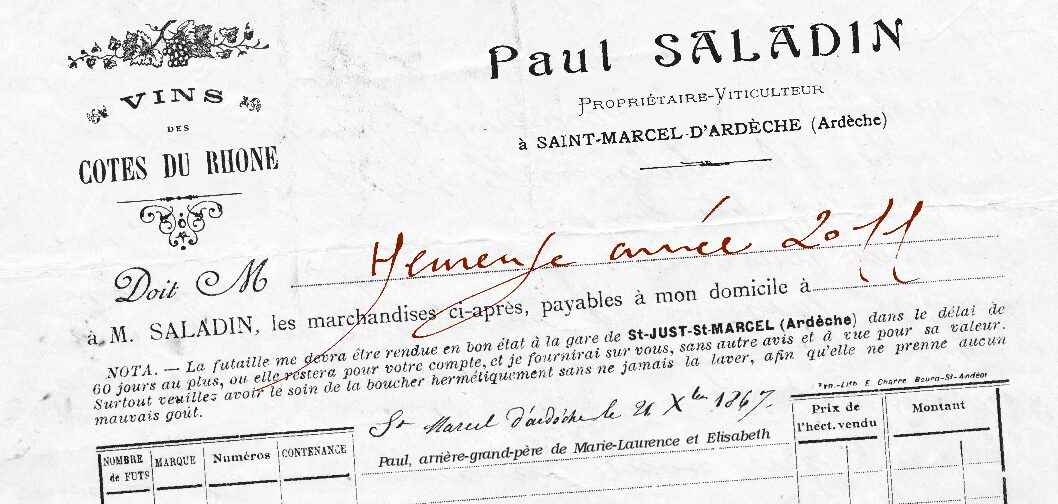 VINS
DES
COTES DU RHONE
Paul SALADIN
PROPRIÉTAIRE-VITICULTEUR
à SAINT-MARCEL-D'ARDÈCHE (Ardèche)
Doit M Heureuse année 2011
à M. SALADIN, les marchandises ci-après, payables à mon domicile à
NOTA. — La futaille me devra être rendue en bon état à la gare de St-JUST-St-MARCEL (Ardèche) dans le délai de
60 jours au plus, ou elle restera pour votre compte, et je fournirai sur vous, sans autre avis et à vue pour sa valeur.
Surtout veuillez avoir le soin de la boucher hermétiquement sans ne jamais la laver, afin qu'elle ne prenne aucun
mauvais goût.
Typ.-Lith E. Charre Bourg-St-Andéol
St Marcel d'ardèche le 21 Xbre 1867.
Paul, arrière-grand-père de Marie-Laurence et Elisabeth
NOMBRE de FUTS
MARQUE
Numéros
CONTENANCE
Prix de l'hect. vendu
Montant